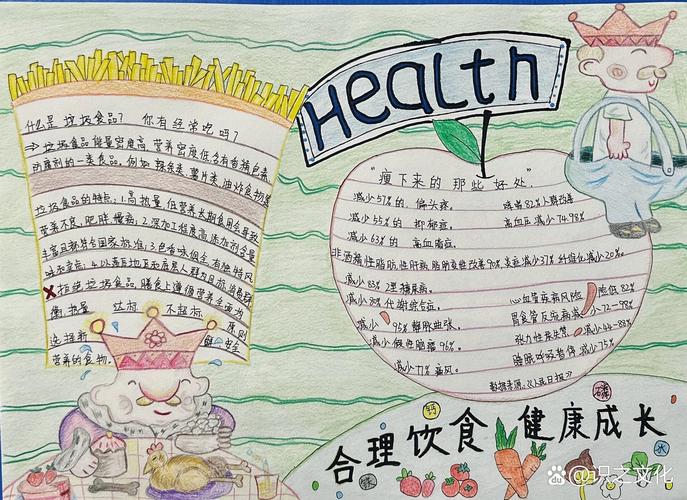 什么是垃圾食品? 你有经常吃吗?
→垃圾食品能量密度高,营养密度低,含有香精色素
防腐剂的一类食品。例如 辣条类、薯片类、油炸食物
垃圾食品的特点:1.高热量 低营养长期食用会导致
营养不良,肥胖慢病;2.深加工程度高添加剂含量
味和变态;4.以落后地区和底层人群为目标消费群
拒绝垃圾食品,膳食上遵循营养全面均
衡,热量 达标 不超标 原则
选择新 鲜 安全
营养的食物。
Health
"瘦下来的 那些 好处"
减少57%的 偏头疼。
减少55%的 抑郁症。
高血压减少74-98%
减少63%的 高血脂症。
减少83% 2型糖尿病。
减少80% 代谢综合症。
心血管疾病风险 降低82%
减少 95% 静脉曲张。
胃食管反流病减 少72-98%
张力性尿失禁 减少44-88%
减少 96%。
睡眠呼吸暂停 减少75%
减少77% 痛风。
数据来源:《人民日报》
钙
磷
合理饮食 健康成长
Bai 百度 @识之文化